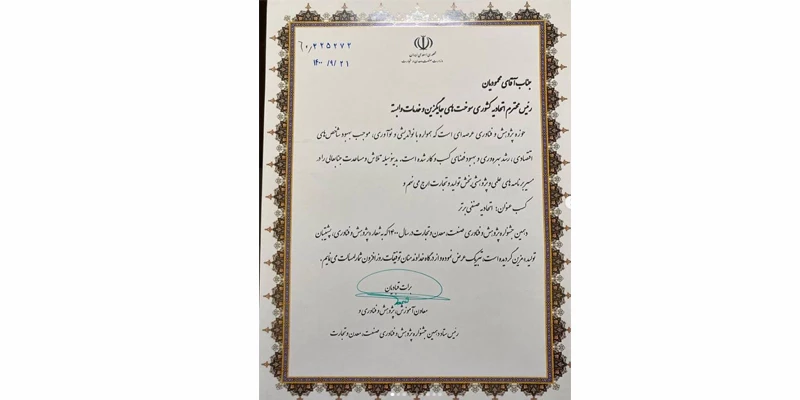 جمهوری اسلامی ایران
وزارت صنعت، معدن و تجارت
۶۰٫۲۳۵۲۷۲
۱۴۰۰/۹/۲۱
جناب آقای محمودیان
رئیس محترم اتحادیه کشوری سوخت های جایگزین و خدمات وابسته
حوزه پژوهش و فناوری عرصه ای است که همواره با نواندیشی و نوآوری، موجب بهبود شاخص های
اقتصادی، رشد بهره وری و بهبود فضای کسب و کار شده است. بدینوسیله تلاش و مساعدت جنابعالی را در
مسیر برنامه های علمی و پژوهشی بخش تولید و تجارت ارج می نهم و
کسب عنوان: اتحادیه صنفی برتر
دهمین جشنواره پژوهش و فناوری صنعت، معدن و تجارت در سال ۱۴۰۰ که به شعار پژوهش و فناوری، پشتیبان
تولید، مزین گردیده است، تبریک عرض نموده و از درگاه خداوند منان توفیقات روز افزون شما را مسالت می نمایم.
برات قنادیان
معاون آموزش، پژوهش و فناوری و
رئیس ستاد دهمین جشنواره پژوهش و فناوری صنعت، معدن و تجارت